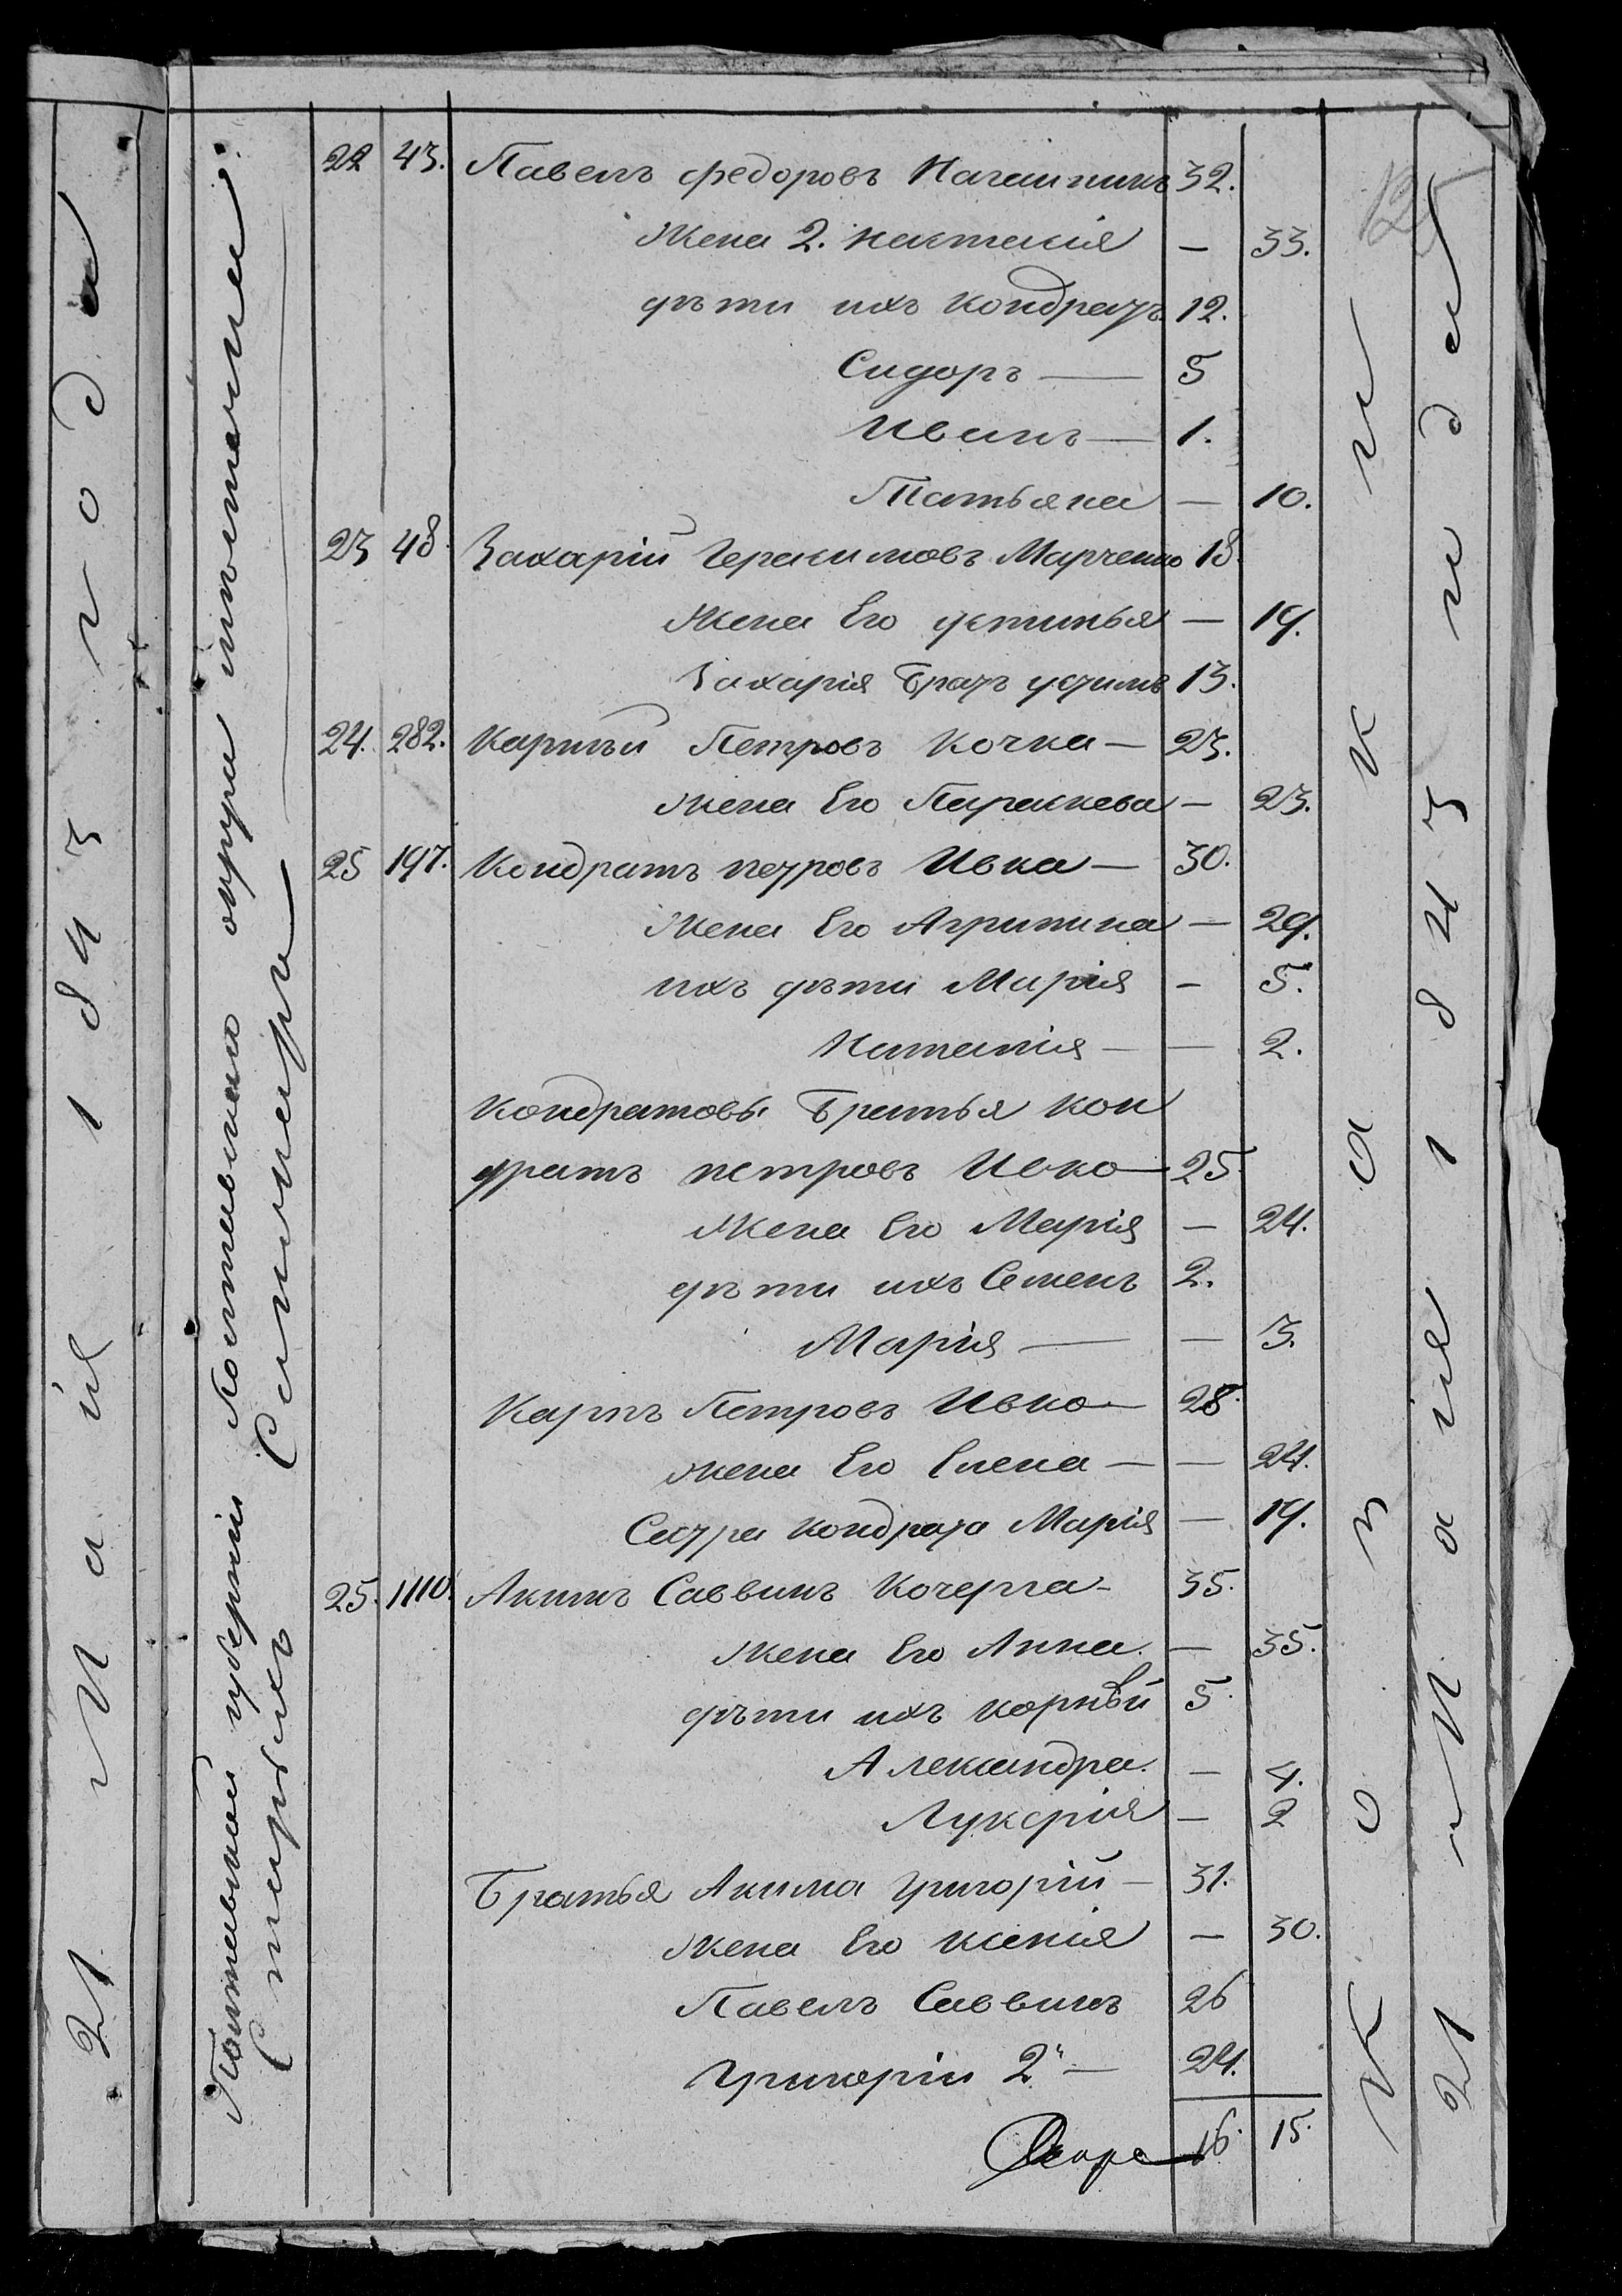 21 Мая 1843 года
Полтавской губерніи Полтавского округа
Старыхъ Санжаръ
22 43. Павелъ Федоровъ 32.
Жена 2. Настасія — 33.
дѣти ихъ Кондратъ 12.
Сидоръ — 5
Иванъ — 1.
Татьяна — 10.
23 48. Захарій Герасимовъ Марченко 18.
Жена Его Устинья — 19.
Захарія Братъ Устимъ 13.
24. 282. Карпъй Петровъ Кочка — 23.
Жена Его Параскева — 23.
25 197. Кондратъ Петровъ Ивка — 30.
Жена Его Агрипина — 29.
ихъ дѣти Марія — 5.
Наталія — — 2.
Кондратовы Братья Кон
дратъ Петровъ Ивко — 25.
Жена Его Марія — 24.
дѣти ихъ Семенъ 2.
Марія — — 3.
Карпъ Петровъ Ивко — 28.
Жена Его Елена — — 24.
Сестра Кондрата Марія — 19.
25. 1110. Акимъ Саввинъ Кочерга — 35.
Жена Его Анна. — 35.
дѣти ихъ Корнѣй 5.
Александра. — 4.
Лукерія — 2
Братья Акима Григорій — 31.
Жена Его Ксенія — 30.
Павелъ Саввинъ 26
Григорій 2й — 24.
16. 15.
Козаки
21 Мая 1843 года